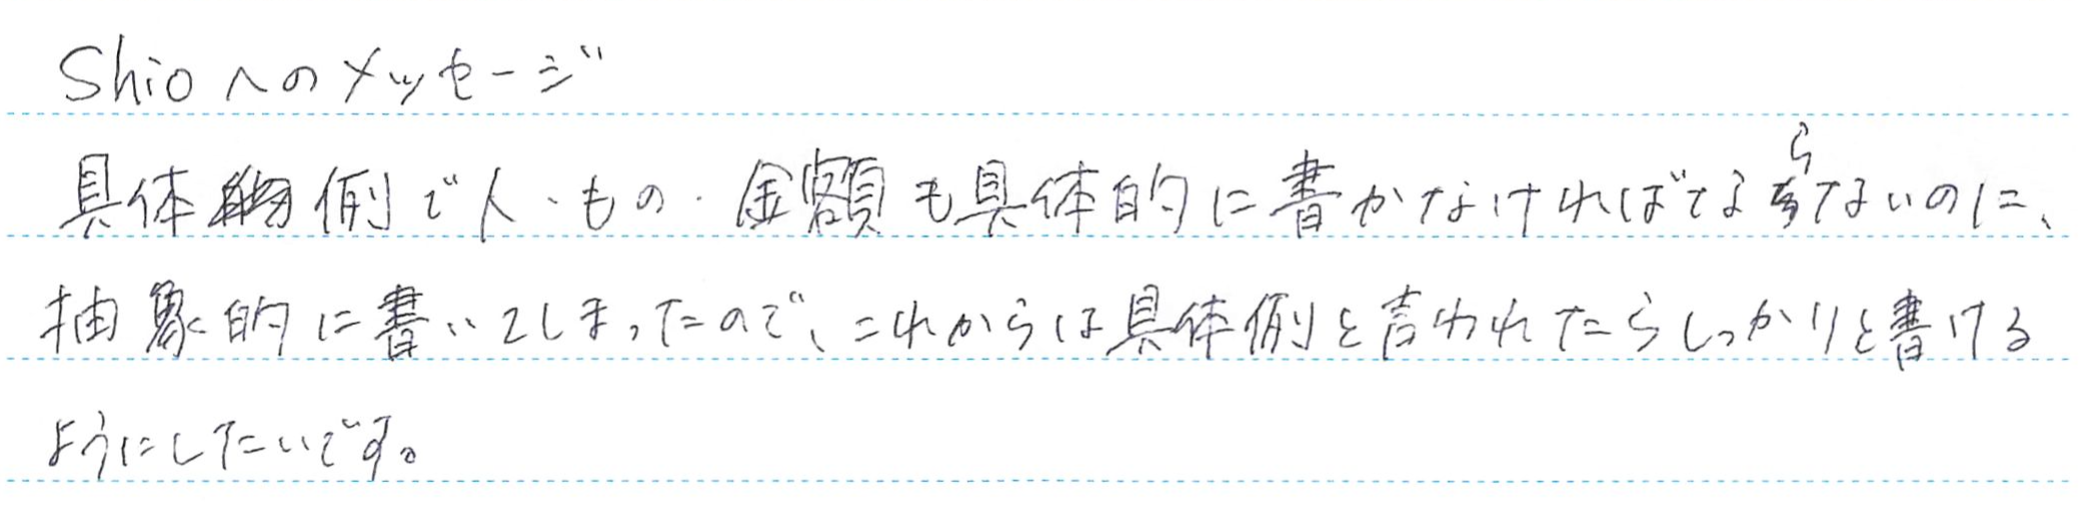 Shioへのメッセージ
具体例で人・もの・金額も具体的に書かなければてならないのに、
抽象的に書いてしまったので、これからは具体例と言われたらしっかりと書ける
ようにしたいです。